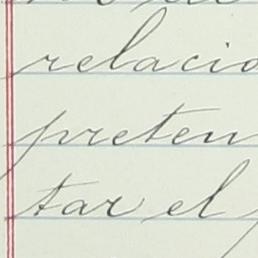 relacio
preten
tar el